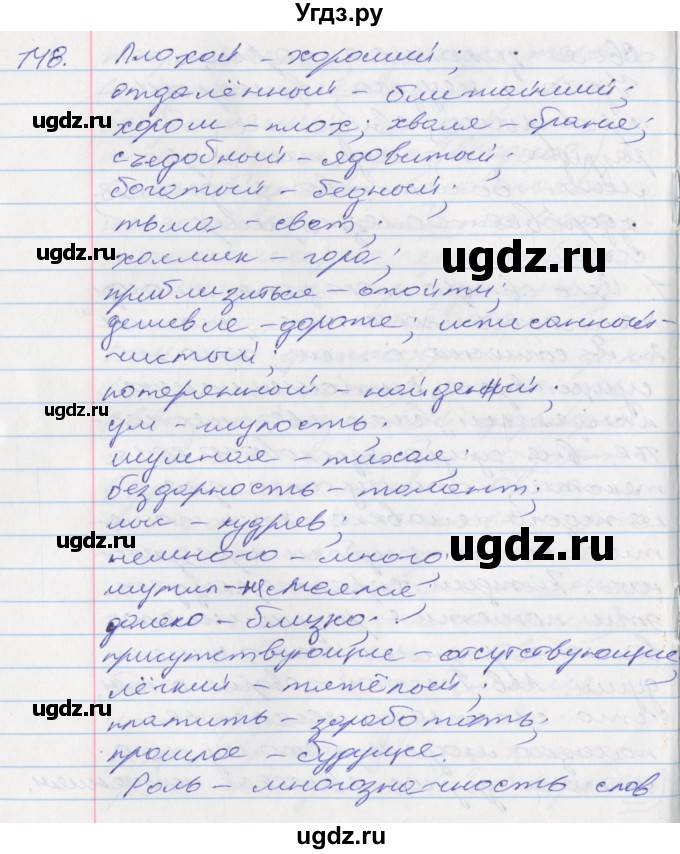 Угдз.ру
148. Плохой – хороший;
отдалённый – ближайший;
хором – плох; хваля – браня;
съедобный – ядовитый;
богатый – бедный;
тьма – свет;
холмик – гора;
приблизиться – отойти;
дешевле – дороже; исписанный –
чистый;
потерянный – найденный;
ум – глупость;
шумная – тихая;
бездарность – талант;
лыс – кудряв;
немного – много;
шутил –
далеко – близко;
присутствующие – отсутствующие,
лёгкий – тяжёлый;
платить – заработать;
прошлое – будущее.
Роль – многозначность слов
ugdz.ru
ugdz.ru
ugdz.ru
ugdz.ru
ugdz.ru
ugdz.ru
ugdz.ru
ugdz.ru
ugdz.ru
ugdz.ru
ugdz.ru